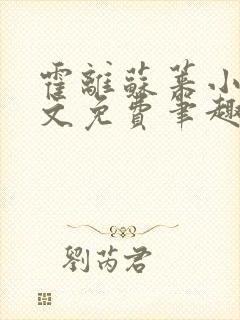 霍離蘇慕小
文免費筆趣
劉芮君